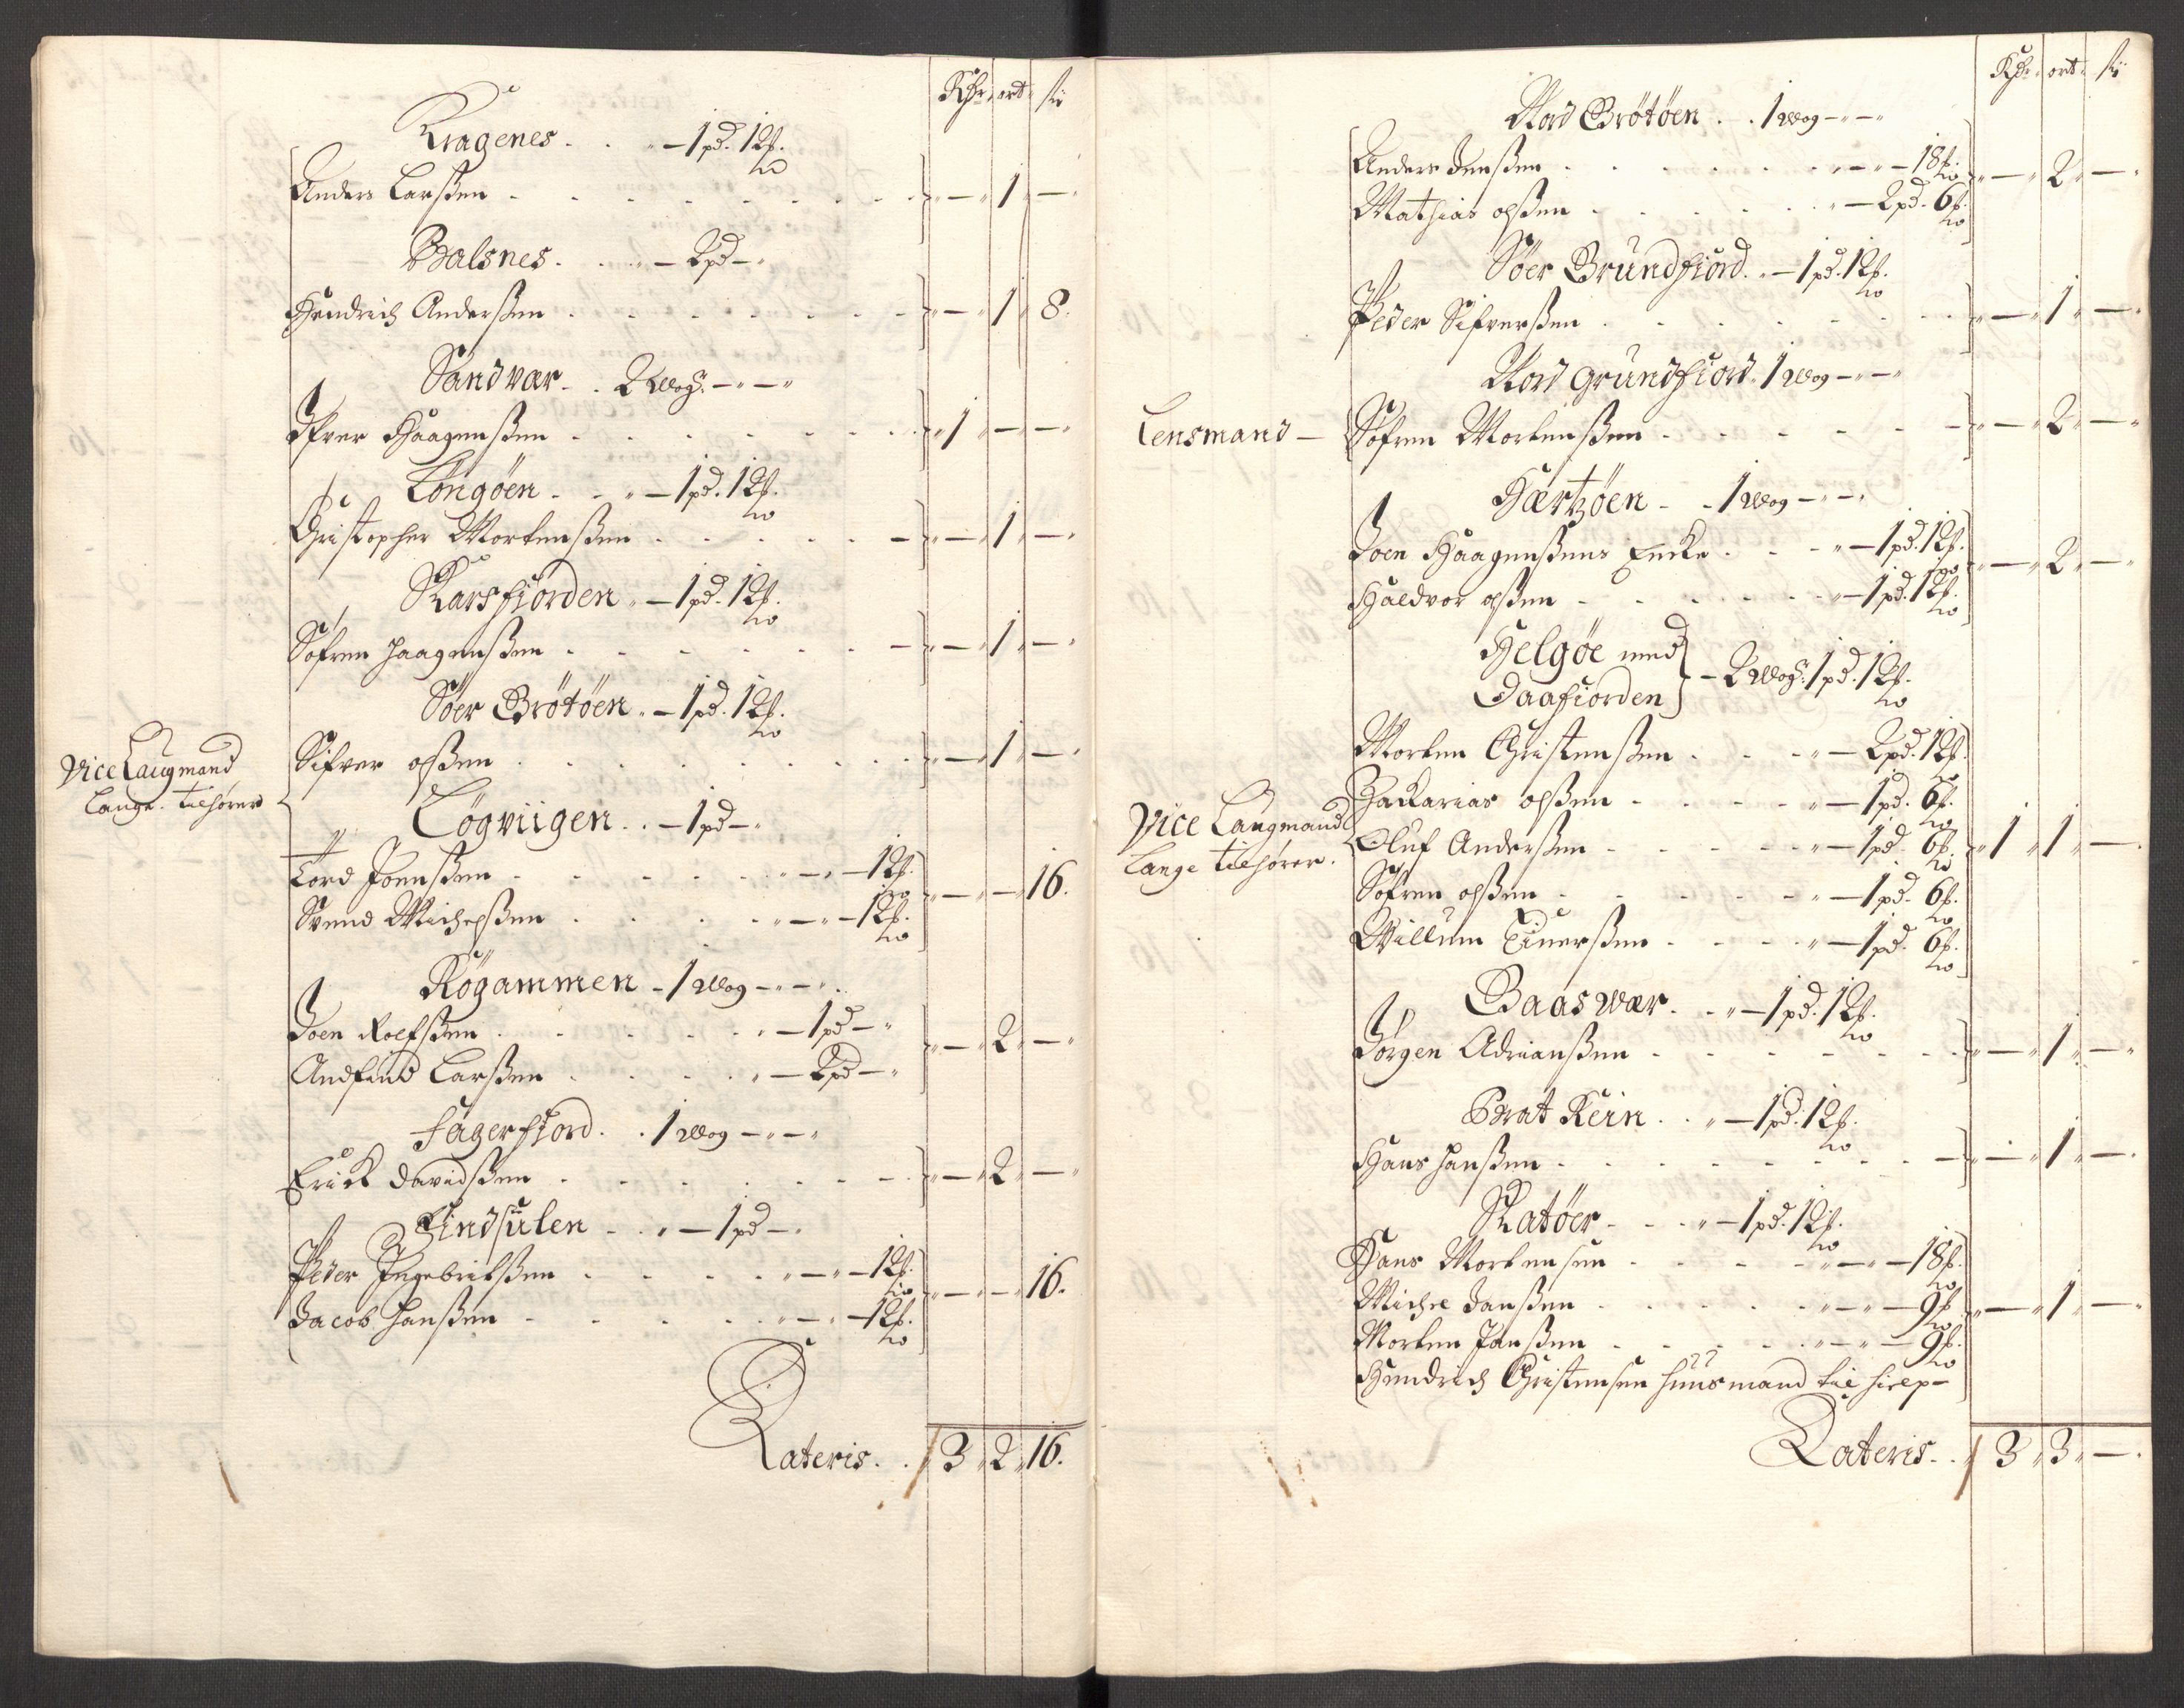 Rdr ort ß
Kragenes . . " – 1 pd. 12 ℔.
Anders Larßen . . . – " 1 " –
Balsnes . . . – 2 pd – "
Hendrich Anderßen . . . – " 1 " 8.
Sandvær . . 2 Wog: – " – "
Ifver Haagenßen . . . 1 " – " –
Longöen . . " – 1 pd. 12 ℔.
Christopher Mortenßen . . . – " 1 " –
Skarsfiorden " – 1 pd. 12 ℔.
Søfren Haagenßen . . . – " 1 " –
Söer Grötöen " – 1 pd. 12 ℔.
Vice Laugmand
Lange tilhører
Sifver olßen . . . – " 1 " –
Lögviigen . . – 1 pd – "
Tord Joenßen . . . " – " – 12 ℔.
– " – " 16.
Svend Michelßen . . . " – " – 12 ℔.
Rögammen – 1 Wog – " – "
Joen Rolfßen . . . " – 1 pd – "
– " 2 " –
Andfind Larßen . . . " – 2 pd – "
Fagerfiord . . 1 Wog – " – "
Erick Davidßen . . . – " 2 " –
Findsulen . . " – 1 pd – "
Peder Ingebritßen . . . " – " – 12 ℔.
– " – " 16.
Jacob Hanßen . . . " – " – 12 ℔.
Lateris . . 3 " 2 " 16.
Rdr ort ß
Nord Grötöen . . 1 Wog – " – "
Anders Jenßen . . . " – " – 18 ℔.
– " 2 " –
Mathias olßen . . . " – 2 pd. 6 ℔.
Söer Grundfiord . " – 1 pd. 12 ℔.
Peder Sifverßen . . . – " 1 " –
Nord Grundfiord . 1 Wog – " – "
Lensmand – Søfren Mortenßen . . . – " 2 " –
Hærtzöen – . 1 Wog – " – "
Joen Haagenßens Encke . . . " – 1 pd. 12 ℔.
– " 2 " –
Haldvor olßen . . . " – 1 pd. 12 ℔.
Helgöe med
Daafiorden – 2 Wog: 1 pd. 12 ℔.
Morten Christenßen . . . " – 2 pd. 12 ℔.
Zackarias olßen . . . " – 1 pd. 6 ℔.
Vice Laugmand
Lange tilhører.
Oluf Anderßen . . . " – 1 pd. 6 ℔.
1 " 1 " –
Søfren olßen . . . " – 1 pd. 6 ℔.
Willum Einerßen . . . " – 1 pd. 6 ℔.
Gaasvær . . " – 1 pd. 12 ℔.
Jørgen Adrianßen . . . – " 1 " –
Brat Rein . . " – 1 pd. 12 ℔.
Hans Hanßen . . . – " 1 " –
Skatöer . . . " – 1 pd. 12 ℔.
Hans Mortensen . . . " – " – 18 ℔.
Michel Janßen . . . " – " – 9 ℔.
– " 1 " –
Morten Janßen . . . " – " – 9 ℔.
Hendrich Christensen huusmand til hielp –
Lateris . . 3 " 3 " –